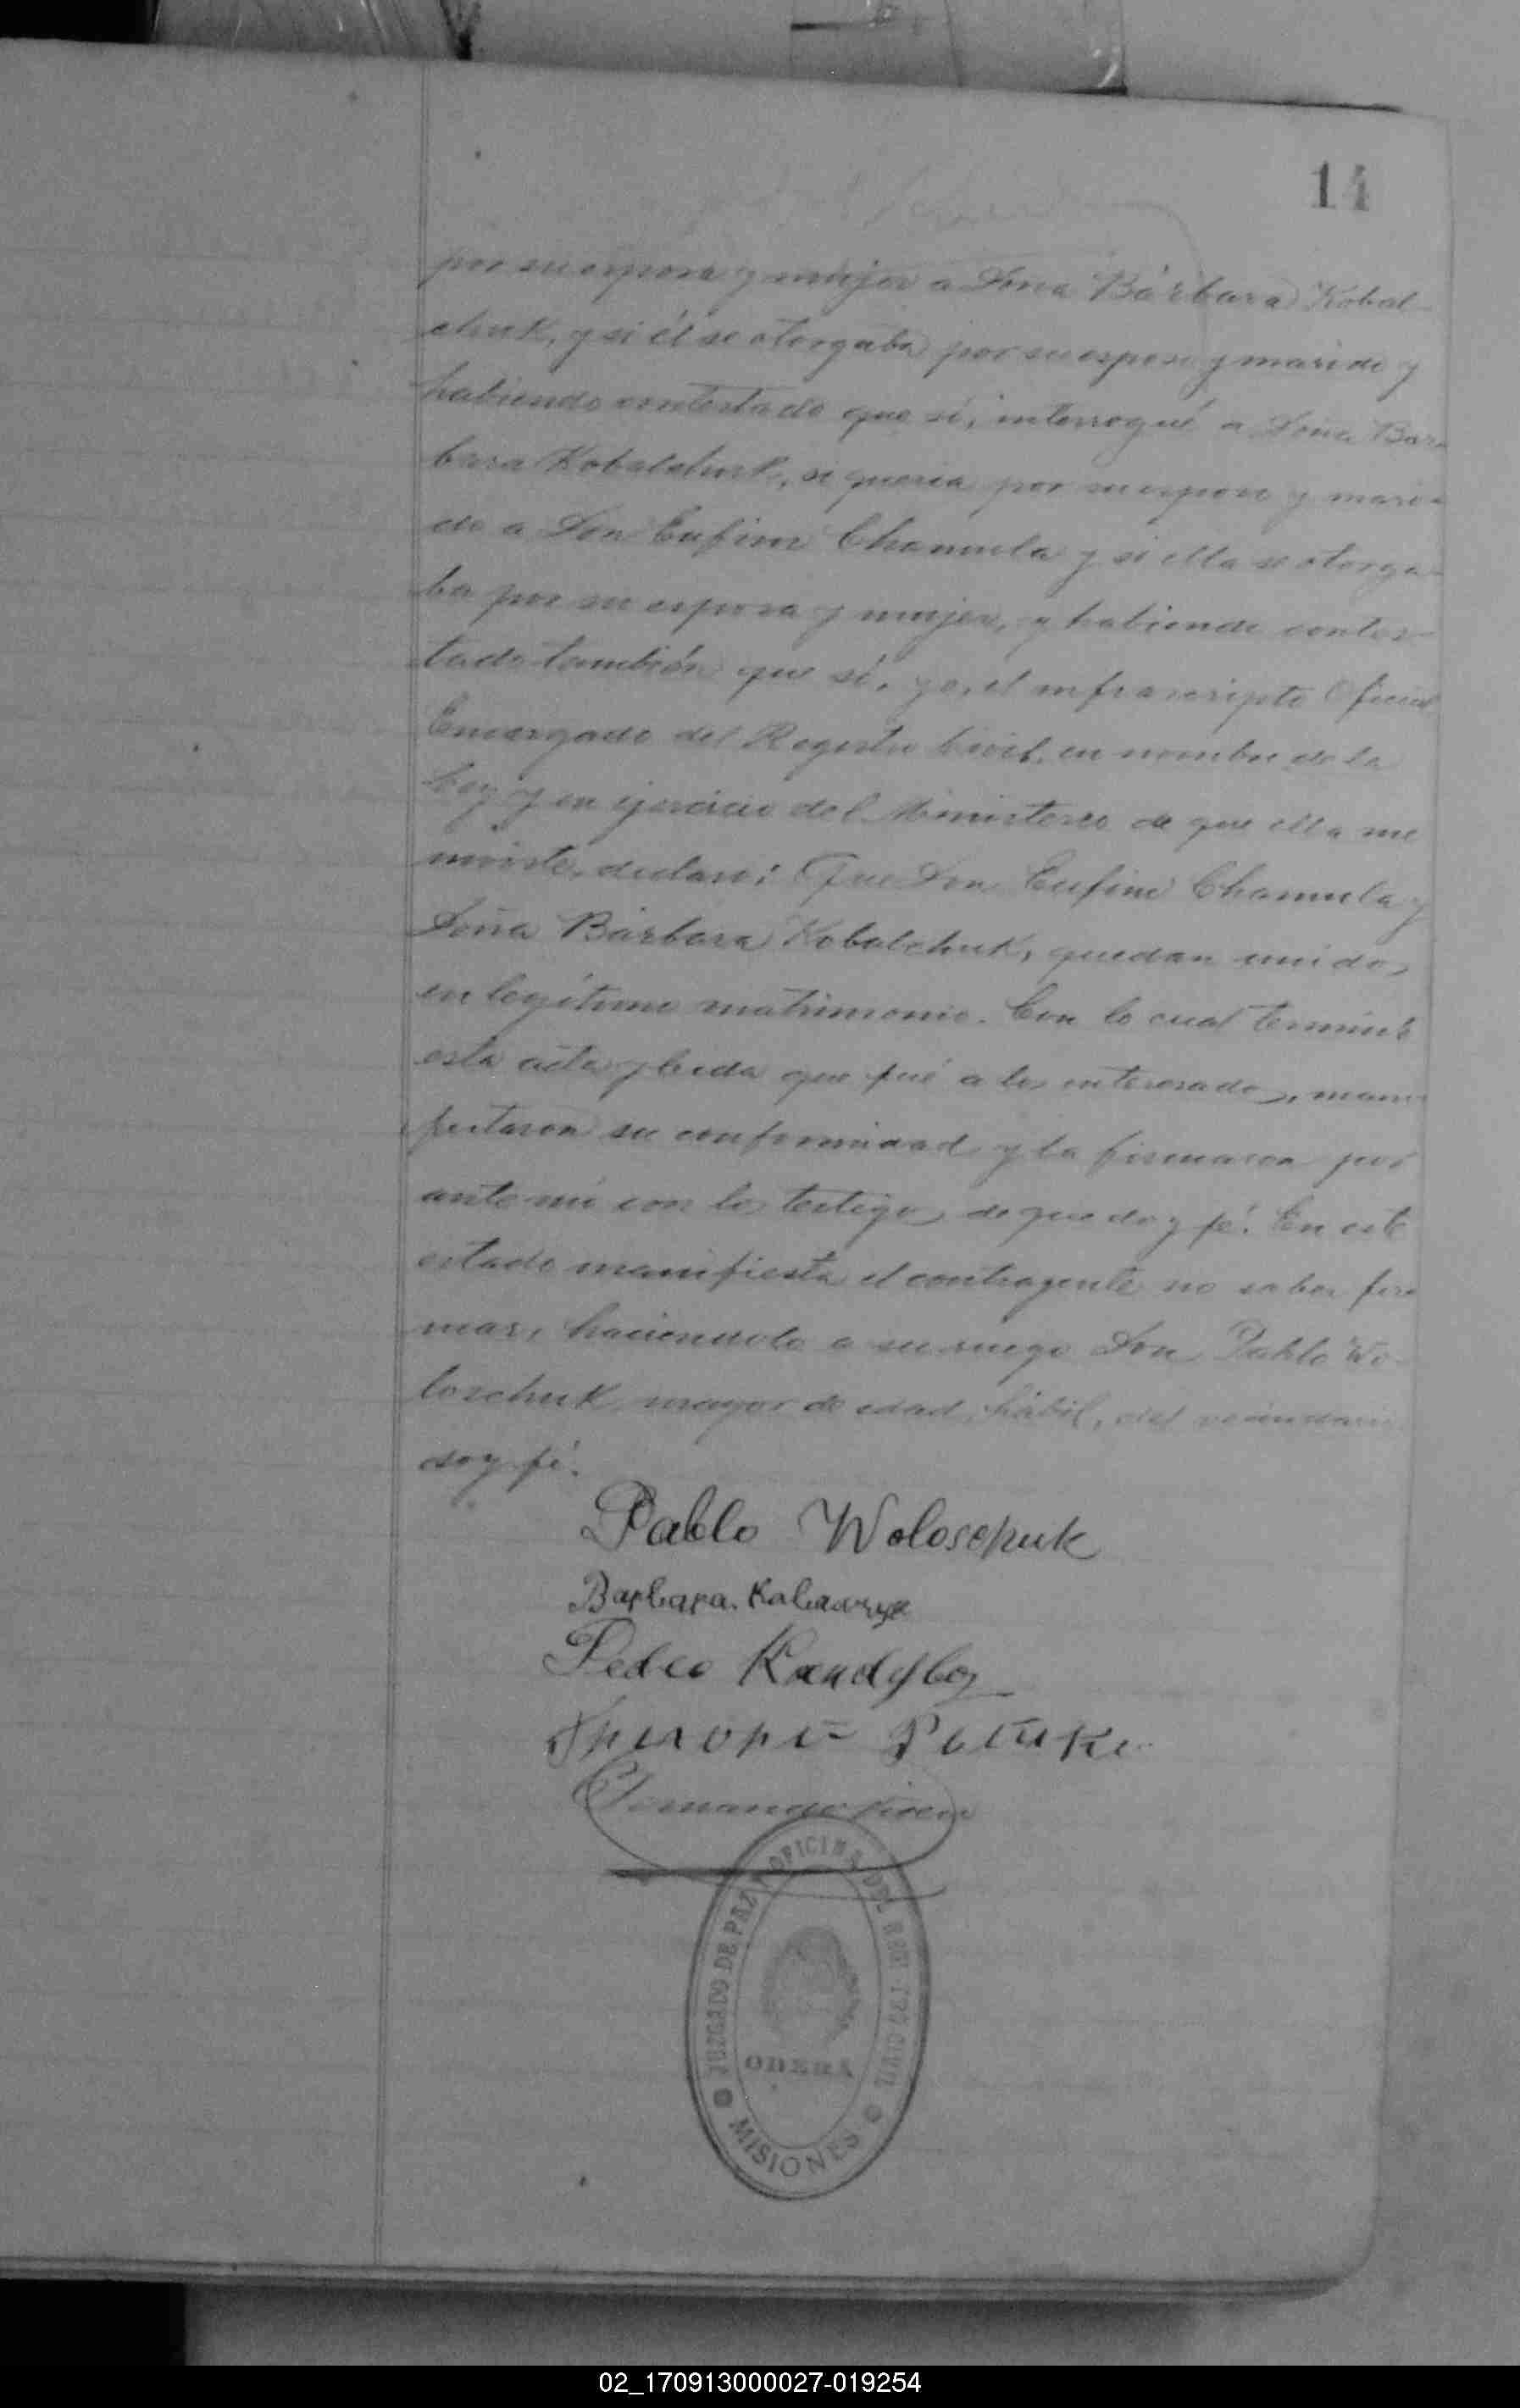 14
por su esposa y mujer a Doña Bárbara Kobal-
chuk, y si él se otorgaba por su esposo y marido y
habiendo contestado que sí, interrogué a Doña Bár-
bara Kobalchuk, si queria por su esposo y mari-
do a Don Eufim Chamula y si ella se otorga-
ba por su esposa y mujer, y habiendo contes-
tado también que sí, yo, el infrascripto Oficial
Encargado del Registro Civil, en nombre de la
Ley y en ejercicio del Ministerio de que ella me
inviste, declaro: Que Don Eufim Chamula y
Doña Bárbara Kobalchuk, quedan unidos
en legítimo matrimonio. Con lo cual terminó
esta acta y leida que fué a los interesados, mani-
festaron su conformidad y la firmaron por
ante mi con los testigos de que doy fé. En este
estado manifiesta el contrayente no saber fir-
mar, haciendolo a su ruego Don Pablo Wo-
loschuk, mayor de edad, hábil, del vecindario
doy fé.
Pablo Woloschuk
Барбара
Pedro Kandyba
Григорі
JUZGADO DE PAZ Y OFICINA DEL REGISTRO CIVIL
OBERÁ
MISIONES
02_170913000027-019254